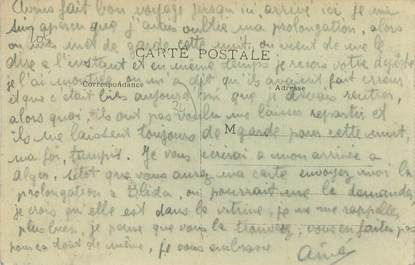 fait bon voyage jusqu'ici, arrivé ici je me
suis aperçu que j'avais oublié ma prolongation, alors
on m'a mis de cette nuit, on vient de me le
CARTE POSTALE
dire à l'instant et en même temps je reçois votre
je l'ai montrée, on m'a dit qu'ils avaient fait erreur
Correspondance
Adresse
et que c'était bien aujourd'hui que je devais rentrer,
alors quoi ils ont pas voulu me laisser repartir et
ils me laissent toujours de garde pour cette nuit,
M
ma foi, tampis. Je vous écrirai à mon arrivée à
Alger, sitôt que vous aurez ma carte envoyez moi la
prolongation à Blida, on pourrait me la demander,
je crois qu'elle est dans la vitrine, je ne me rappelle
plus bien, je pense que vous la trouverez, vous en faites pas
pour ça tout de même, je vous embrasse
Aimé